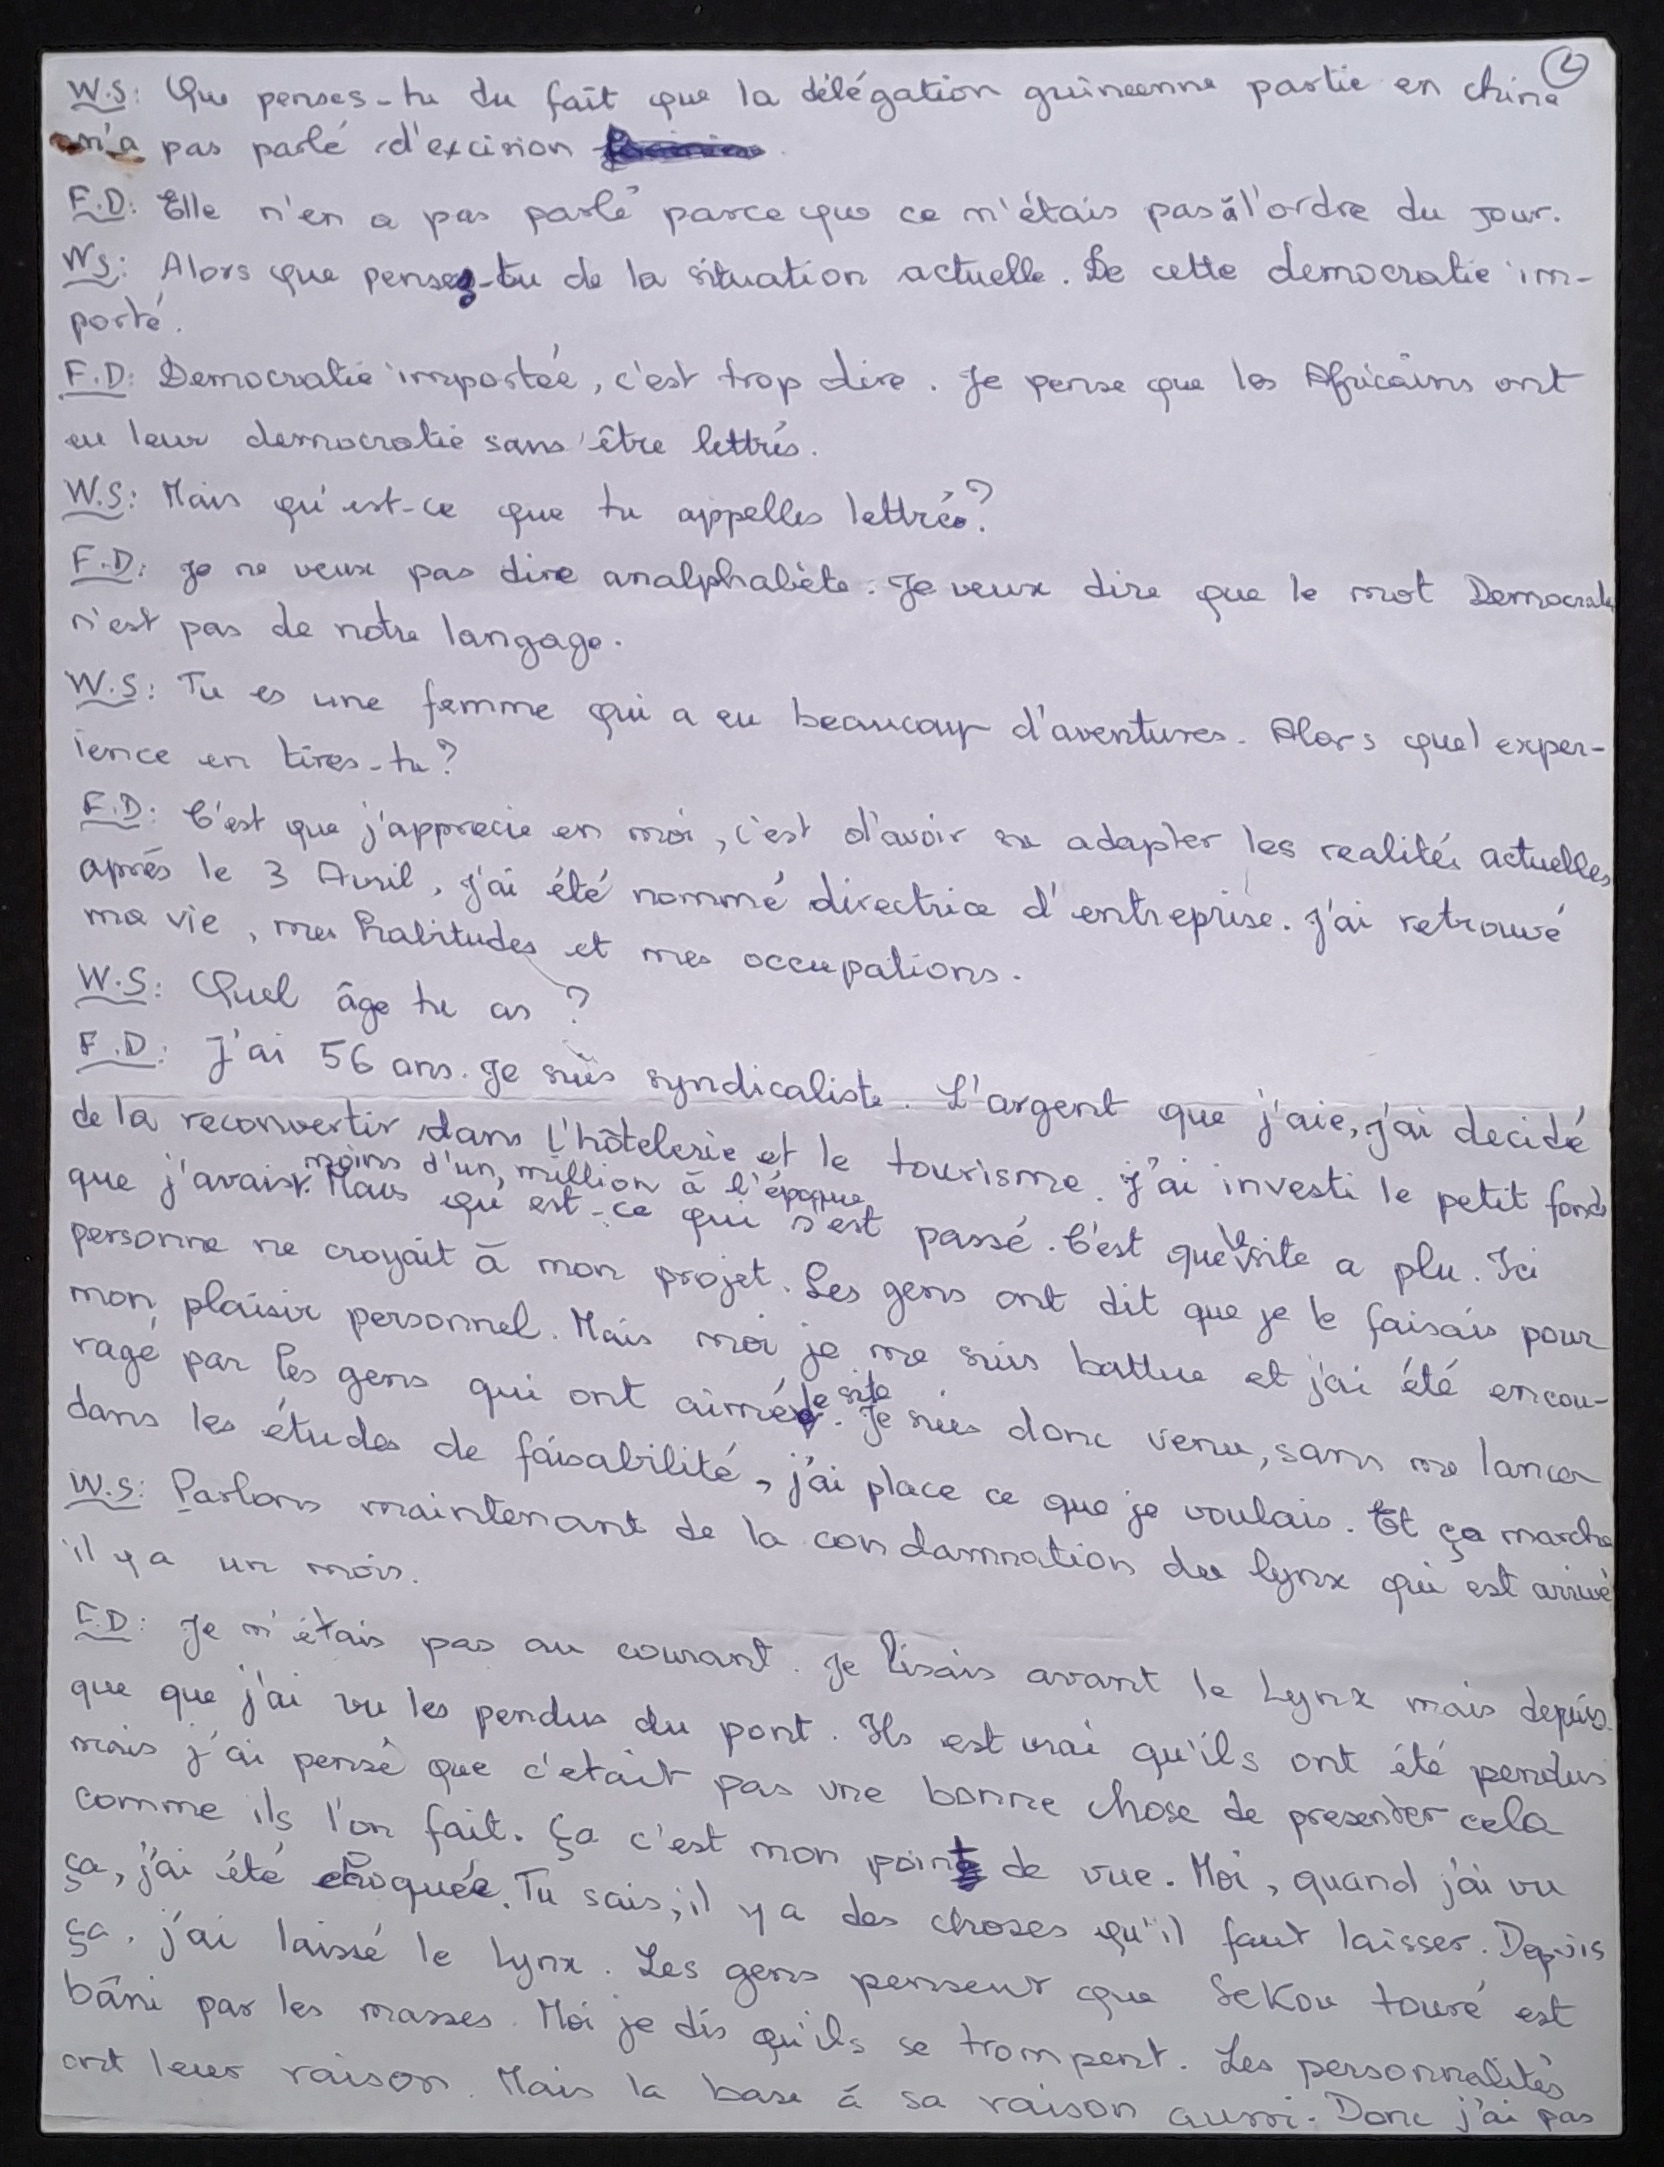 W.S: Que penses-tu du fait que la délégation guinéenne partie en chine
n'a pas parlé d'excision
F.D: Elle n'en a pas parlé parce que ce n'étais pas à l'ordre du jour.
WS: Alors que penses-tu de la situation actuelle. De cette democratie im-
porté.
F.D: Democratie importée, c'est trop dire. Je pense que les Africains ont
eu leur democratie sans être lettrés.
W.S: Mais qu'est-ce que tu appelles lettrés?
F.D: Je ne veux pas dire analphabète. Je veux dire que le mot Democratie
n'est pas de notre langage.
W.S: Tu es une femme qui a eu beaucoup d'aventures. Alors quel exper-
ience en tires-tu?
F.D: C'est que j'apprecie en moi, c'est d'avoir su adapter les realités actuelles
après le 3 Avril, j'ai été nommé directrice d'entreprise. J'ai retrouvé
ma vie, mes habitudes et mes occupations.
W.S: Quel âge tu as ?
F.D: J'ai 56 ans. Je suis syndicaliste. L'argent que j'aie, j'ai decidé
de la reconvertir dans l'hôtelerie et le tourisme. J'ai investi le petit fonds
que j'avais moins d'un million à l'époque. Mais qu'est-ce qui s'est passé. C'est que le site a plu. Ici
personne ne croyait à mon projet. Les gens ont dit que je le faisais pour
mon plaisir personnel. Mais moi je me suis battue et j'ai été encou-
ragé par les gens qui ont aimé le site. Je suis donc venu, sans me lancer
dans les études de faisabilité, j'ai place ce que je voulais. Et ça marche
W.S: Parlons maintenant de la condamnation du lynx qui est arrivé
il y a un mois.
F.D: Je n'étais pas au courant. Je lisais avant le Lynx mais depuis
que que j'ai vu les pendus du pont. Ils est vrai qu'ils ont été pendus
mais j'ai pensé que c'etait pas une bonne chose de presenter cela
comme ils l'on fait. Ça c'est mon point de vue. Moi, quand j'ai vu
ça, j'ai été choquée. Tu sais, il y a des choses qu'il faut laisser. Depuis
ça, j'ai laissé le Lynx. Les gens penseur que Sekou touré est
bâni par les masses. Moi je dis qu'ils se trompent. Les personnalités
ont leur raison. Mais la base à sa raison aussi. Donc j'ai pas